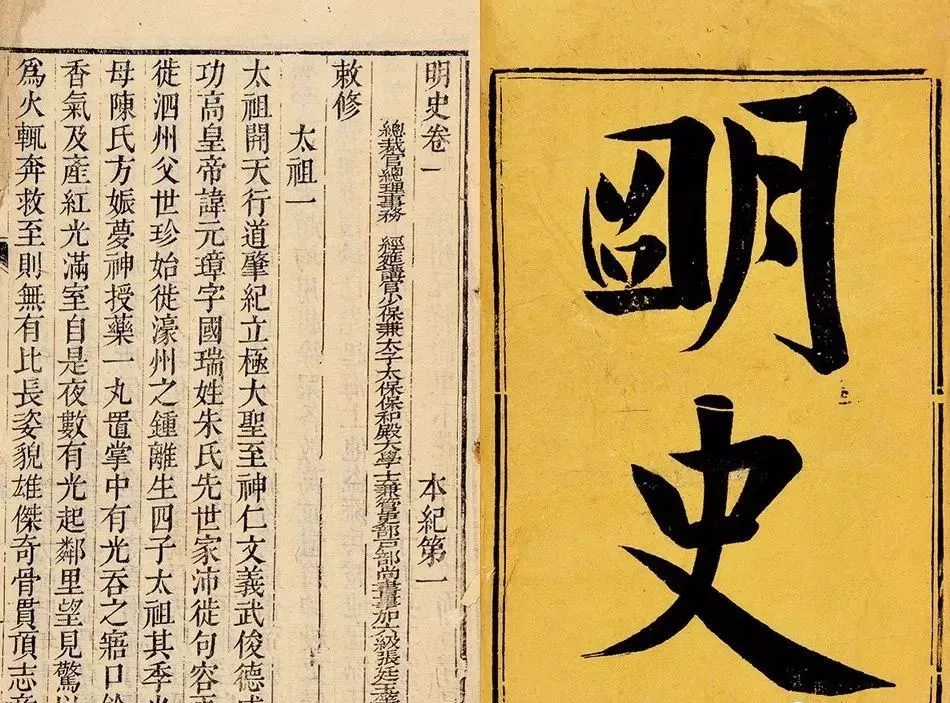 明史
明史卷一 本紀第一
總裁官總理事務 經筵講官少保兼太子太保保和殿大學士兼管吏部戶部尚書事加六級張廷玉
敕修
太祖一
太祖開天行道肇紀立極大聖至神仁文義武俊德成
功高皇帝諱元璋字國瑞姓朱氏先世家沛徙句容
徙泗州父世珍始徙濠州之鍾離生四子太祖其季
母陳氏方娠夢神授藥一丸置掌中有光吞之寤口
香氣及產紅光滿室自是夜數有光起鄰里望見驚以
爲火輒奔救至則無有比長姿貌雄傑奇骨貫頂志